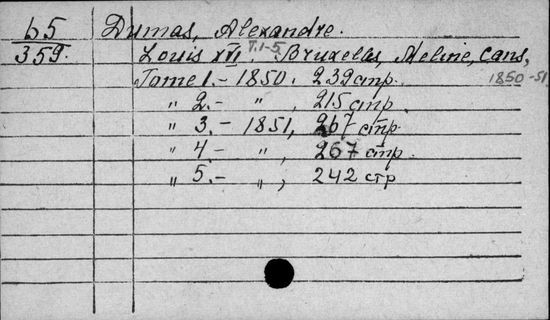 65 Dumas, Alexandre.
359. Louis XVI. T.1-5. Bruxelles, Meline, Cans,
1850-51.
Tome 1. - 1850. 239 стр.
" 2. - ", 215 стр.
" 3. - 1851, 267 стр.
" 4 - ", 267 стр.
" 5. - ", 242 стр